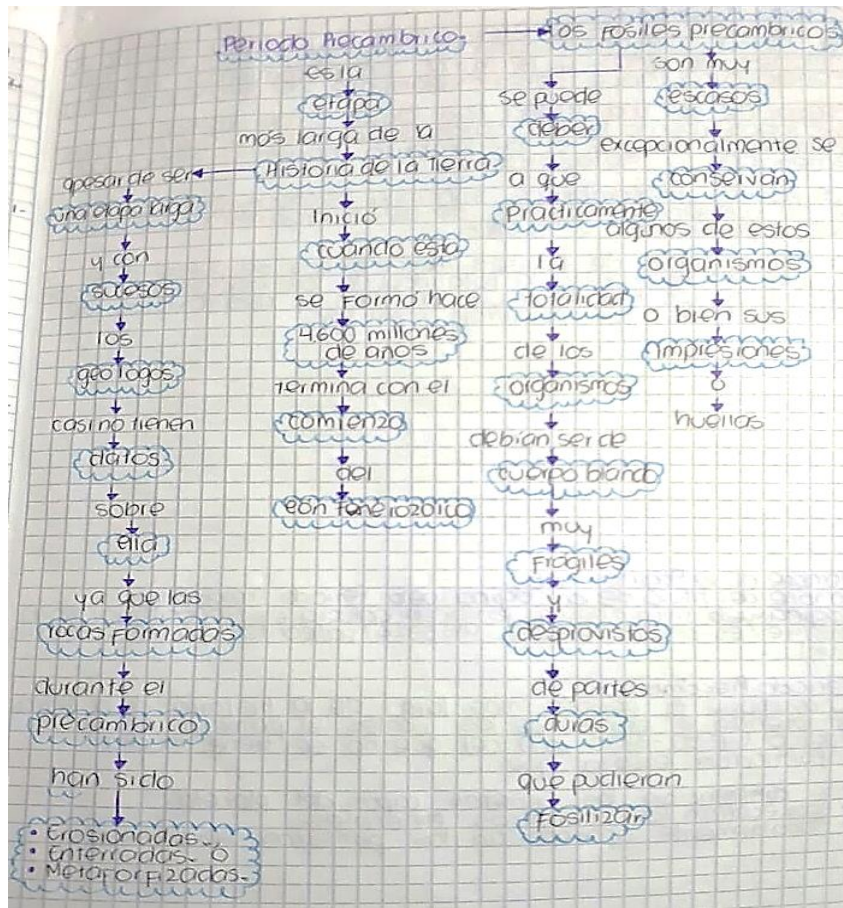 Periodo Precambrico.
es la
etapa
mas larga de la
Historia de la Tierra
Inició
cuando esta
se Formó hace
4.600 millones
de años
Termina con el
comienzo
del
eón fanerozoico
apesar de ser
una etapa larga
y con
sucesos
los
geologos
casi no tienen
datos
sobre
ella
ya que las
rocas Formadas
durante el
precambrico
han sido
• Erosionadas.
• Enterradas. O
• Metaforfizadas.
los Fósiles precambricos
se puede
deber
a que
Prácticamente
la
totalidad
de los
organismos
debian ser de
cuerpo blando
muy
Fragiles
y
desprovistos
de partes
duras
que pudieran
Fosilizar
son muy
escasos
excepcionalmente se
conservan
algunos de estos
organismos
o bien sus
Impresiones
o
huellas